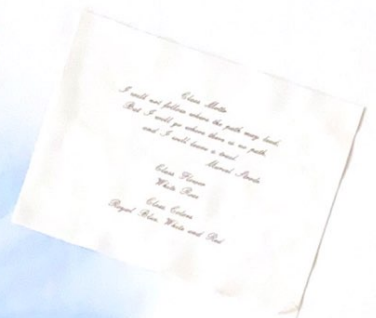 Class Motto
I will not follow where the path may lead,
But I will go where there is no path,
and I will leave a trail.
Muriel Strode
Class Flower
White Rose
Class Colors
Royal Blue, White and Red